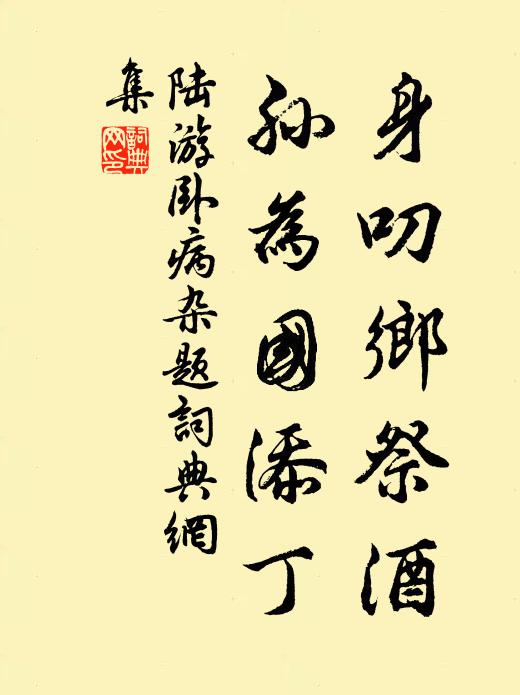 身叨鄉祭酒
孙為國添丁
陆游卧病杂题詞典網
集
詞典網印